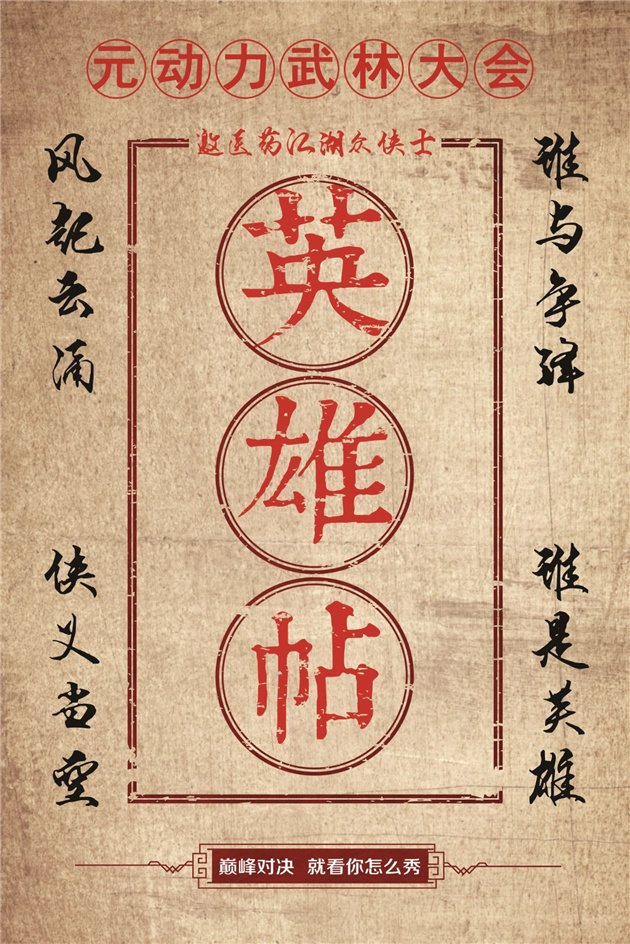 元动力武林大会
邀医药江湖众侠士
英雄帖
风起云涌
谁与争锋
侠义当空
谁是英雄
巅峰对决 就看你怎么秀